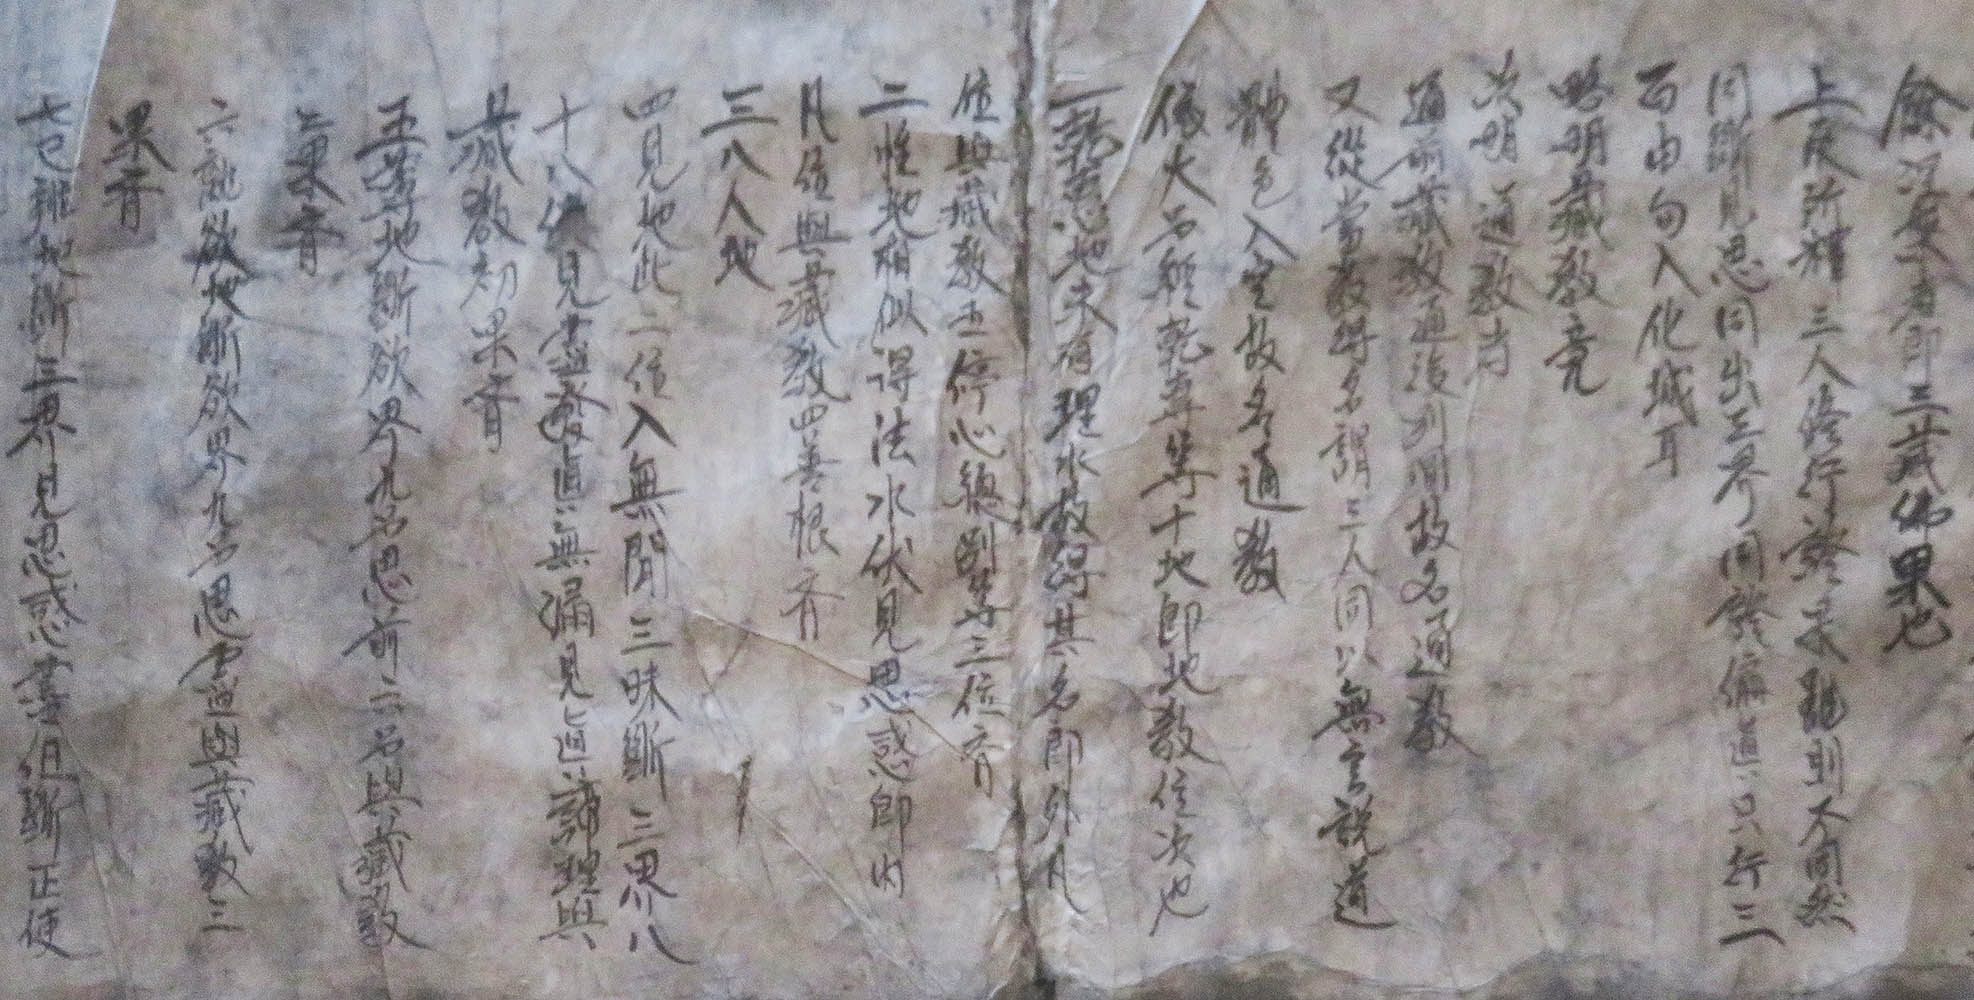 餘涅槃者即三藏佛果也
上來所釋三人修行證果雖則不同然
同斷見思同出三界同證偏真只行三
百由旬入化城耳
略明藏教竟
次明通教者
通前藏教通後別圓故名通教
又從當教得名謂三人同以無言說道
體色入空故名通教
依大品經乾慧等十地即此教位次也
一乾慧地未有理水故得其名即外凡
位與藏教五停心總別等三位齊
二性地相似得法水伏見思惑即內
凡位與藏教四善根齊
三八人地
四見地此二位入無間三昧斷三界八
十八使見盡發真無漏見真諦理與
藏教初果齊
五薄地斷欲界九品思前六品與藏教
二果齊
六離欲地斷欲界九品思盡與藏教三
果齊
七已辦地斷三界見思惑盡但斷正使